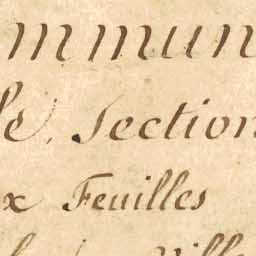 mmun
le, Section
x Feuilles
Ville